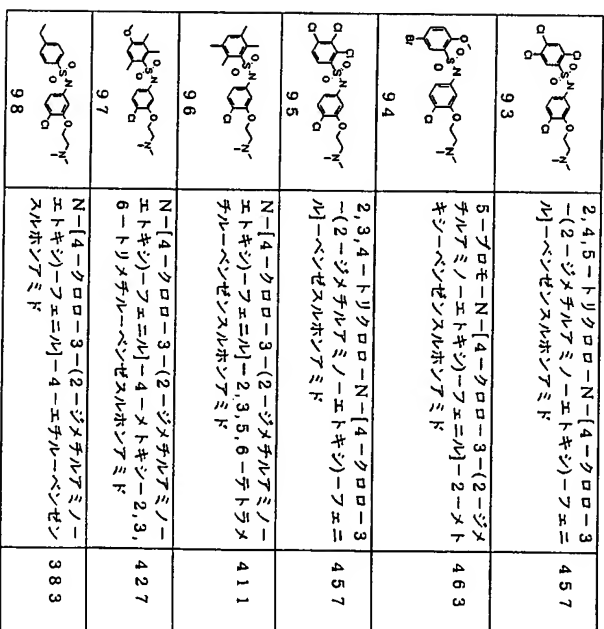 93
2,4,5−トリクロロ−N−[4−クロロ−3
−(2−ジメチルアミノ−エトキシ)−フェニ
ル]−ベンゼスルホンアミド
457
94
5−ブロモ−N−[4−クロロ−3−(2−ジメ
チルアミノ−エトキシ)−フェニル]−2−メト
キシ−ベンゼスルホンアミド
463
95
2,3,4−トリクロロ−N−[4−クロロ−3
−(2−ジメチルアミノ−エトキシ)−フェニ
ル]−ベンゼスルホンアミド
457
96
N−[4−クロロ−3−(2−ジメチルアミノ−
エトキシ)−フェニル]−2,3,5,6−テトラメ
チル−ベンゼンスルホンアミド
411
97
N−[4−クロロ−3−(2−ジメチルアミノ−
エトキシ)−フェニル]−4−メトキシ−2,3,
6−トリメチル−ベンゼスルホンアミド
427
98
N−[4−クロロ−3−(2−ジメチルアミノ−
エトキシ)−フェニル]−4−エチル−ベンゼン
スルホンアミド
383